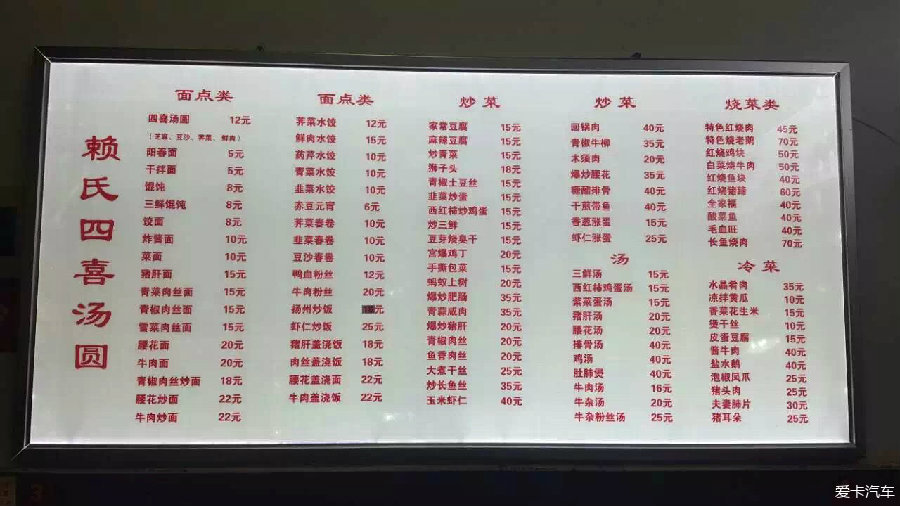 赖氏四喜汤圆
面点类
四喜汤圆 12元
(芝麻、豆沙、荠菜、鲜肉)
阳春面 5元
干拌面 5元
馄饨 8元
三鲜馄饨 8元
饺面 8元
炸酱面 10元
菜面 10元
猪肝面 15元
青菜肉丝面 15元
青椒肉丝面 15元
雪菜肉丝面 15元
腰花面 20元
牛肉面 20元
青椒肉丝炒面 18元
腰花炒面 22元
牛肉炒面 22元
面点类
荠菜水饺 12元
鲜肉水饺 15元
药芹水饺 10元
青菜水饺 10元
韭菜水饺 10元
赤豆元宵 6元
荠菜春卷 10元
韭菜春卷 10元
豆沙春卷 10元
鸭血粉丝 12元
牛肉粉丝 20元
扬州炒饭 元
虾仁炒饭 25元
猪肝盖浇饭 18元
肉丝盖浇饭 18元
腰花盖浇面 22元
牛肉盖浇饭 22元
炒菜
家常豆腐 15元
麻辣豆腐 15元
炒青菜 15元
狮子头 18元
青椒土豆丝 15元
韭菜炒蛋 15元
西红柿炒鸡蛋 15元
炒三鲜 15元
豆芽烧臭干 15元
宫爆鸡丁 20元
手撕包菜 15元
蚂蚁上树 20元
爆炒肥肠 35元
青蒜咸肉 35元
爆炒猪肝 20元
青椒肉丝 20元
鱼香肉丝 20元
大煮干丝 25元
炒长鱼丝 35元
玉米虾仁 40元
炒菜
回锅肉 40元
青椒牛柳 35元
木须肉 20元
爆炒腰花 35元
糖醋排骨 40元
干煎带鱼 40元
香葱涨蛋 15元
虾仁涨蛋 25元
汤
三鲜汤 15元
西红柿鸡蛋汤 15元
紫菜蛋汤 15元
猪肝汤 20元
腰花汤 20元
排骨汤 40元
鸡汤 40元
肚肺煲 40元
牛肉汤 16元
牛杂汤 20元
牛杂粉丝汤 25元
烧菜类
特色红烧肉 45元
特色烧老鹅 70元
红烧鸡块 50元
白菜烧牛肉 50元
红烧鱼块 40元
红烧猪蹄 60元
全家福 40元
酸菜鱼 40元
毛血旺 40元
长鱼烧肉 70元
冷菜
水晶肴肉 35元
凉拌黄瓜 10元
香菜花生米 15元
烫干丝 10元
皮蛋豆腐 15元
酱牛肉 40元
盐水鹅 40元
泡椒凤爪 25元
猪头肉 25元
夫妻肺片 30元
猪耳朵 25元
爱卡汽车